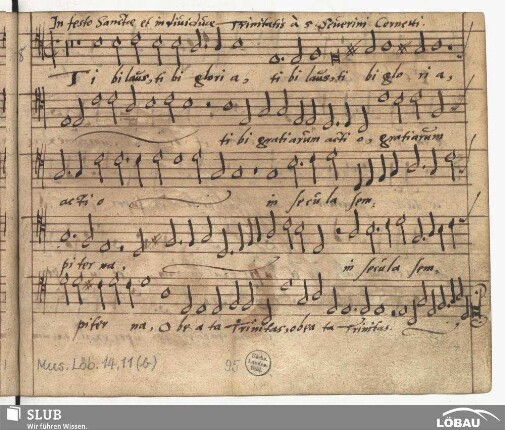 In festo Sanctae et individuae Trinitatis à 5 Severini Cornetti.
Ti bi laus, ti bi glori a, ti bi laus, ti bi glo ri a,
ti bi gratiarum acti o, gratiarum
acti o in secula sem,
piter na, in secula sem,
piter na, O be a ta Trinitas, o bea ta Trinitas.
Mus. Löb. 14,11 (b)
95
Sächs. Landes- Bibl.
SLUB
Wir führen Wissen.
LÖBAU